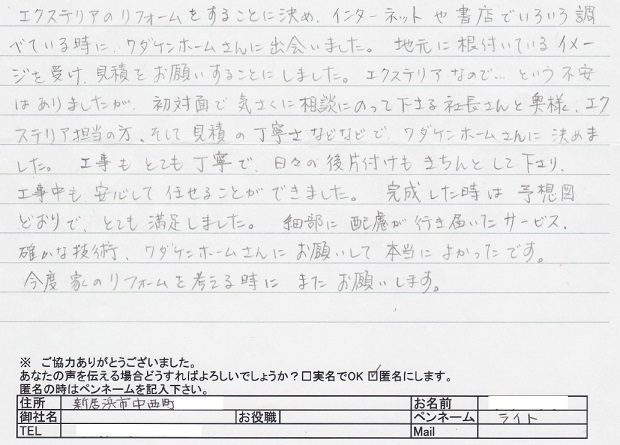 エクステリアのリフォームをすることに決め、インターネットや書店でいろいろ調
べている時に、ワダケンホームさんに出会いました。 地元に根付いているイメー
ジを受け、見積をお願いすることにしました。 エクステリアなので… という不安
はありましたが、初対面で気さくに相談にのって下さる社長さんと奥様、エク
ステリア担当の方、そして見積の丁寧さなどなどで、ワダケンホームさんに決めま
した。 工事もとても丁寧で、日々の後片付けもきちんとして下さり、
工事中も安心して任せることができました。 完成した時は予想図
どおりで、とても満足しました。 細部に配慮が行き届いたサービス、
確かな技術、ワダケンホームさんにお願いして本当によかったです。
今度家のリフォームを考える時にまたお願いします。
※ ご協力ありがとうございました。
あなたの声を伝える場合どうすればよろしいでしょうか？□実名でOK ☑匿名にします。
匿名の時はペンネームを記入下さい。
住所 新居浜市中西町 お名前
御社名 お役職 ペンネーム ライト
TEL Mail